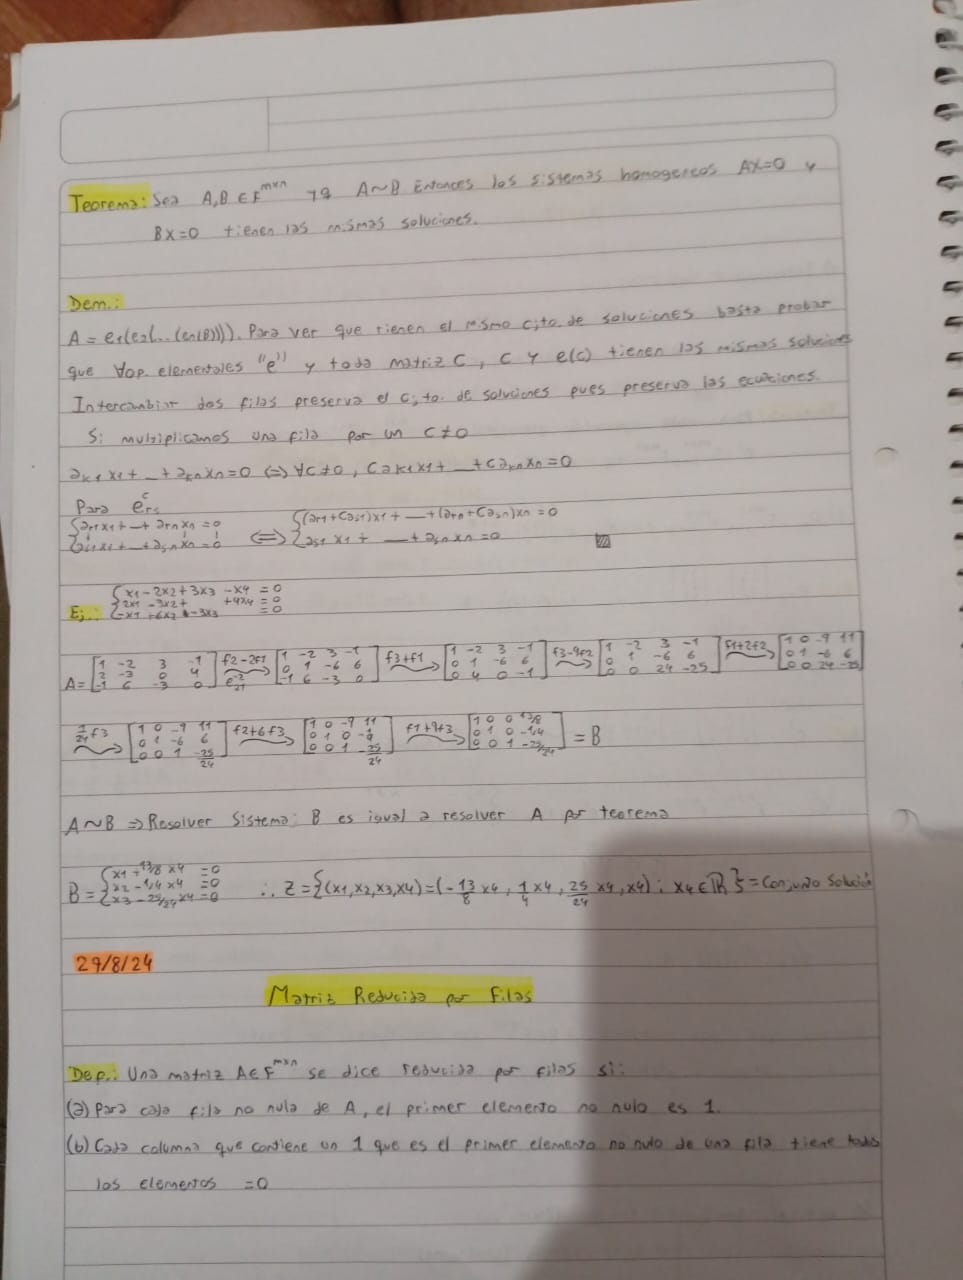 Teorema: Sea A,B ∈ F^mxn tq A~B Entonces los sistemas homogeneos AX=0 y
BX=0 tienen las mismas soluciones.
Dem.:
A = e1(e2(...(en(B)))). Para ver que tienen el mismo cjto. de soluciones basta probar
que ∀op. elementales "e" y toda matriz C, C y e(c) tienen las mismas soluciones
Intercambiar dos filas preserva el cjto. de soluciones pues preserva las ecuaciones.
Si multiplicamos una fila por un C≠0
ak1 x1 + _ + akn xn = 0 ⇔ ∀C≠0, Cak1x1 + _ + Cakn xn = 0
Para e^c_rs
{ar1x1 + _ + arn xn = 0 ⇔ {(ar1+Cas1)x1 + _ + (arn+Casn)xn = 0
{as1x1 + _ + asn xn = 0 {as1 x1 + _ + asn xn = 0
Ej.: {x1 - 2x2 + 3x3 - x4 = 0
{2x1 - 3x2 + +4x4 = 0
{-x1 + 6x2 - 3x3 = 0
A = [1 -2 3 -1; 2 -3 0 4; -1 6 -3 0] f2-2f1 e^-2_21 [1 -2 3 -1; 0 1 -6 6; -1 6 -3 0] f3+f1 [1 -2 3 -1; 0 1 -6 6; 0 4 0 -1] f3-4f2 [1 -2 3 -1; 0 1 -6 6; 0 0 24 -25] f1+2f2 [1 0 -9 11; 0 1 -6 6; 0 0 24 -25]
1/24 f3 [1 0 -9 11; 0 1 -6 6; 0 0 1 -25/24] f2+6f3 [1 0 -9 11; 0 1 0 ; 0 0 1 -25/24] f1+9f3 [1 0 0 13/8; 0 1 0 -1/4; 0 0 1 -25/24] = B
A~B ⇒ Resolver Sistema: B es igual a resolver A por teorema
B = {x1 + 13/8 x4 = 0
{x2 - 1/4 x4 = 0
{x3 - 25/24 x4 = 0 ∴ Z = {(x1,x2,x3,x4) = (-13/8 x4, 1/4 x4, 25/24 x4, x4) : x4 ∈ ℝ} = Conjunto Solución
29/8/24
Matriz Reducida por filas
Def.: Una matriz A∈F^mxn se dice reducida por filas si:
(a) Para cada fila no nula de A, el primer elemento no nulo es 1.
(b) Cada columna que contiene un 1 que es el primer elemento no nulo de una fila tiene todos
los elementos =0